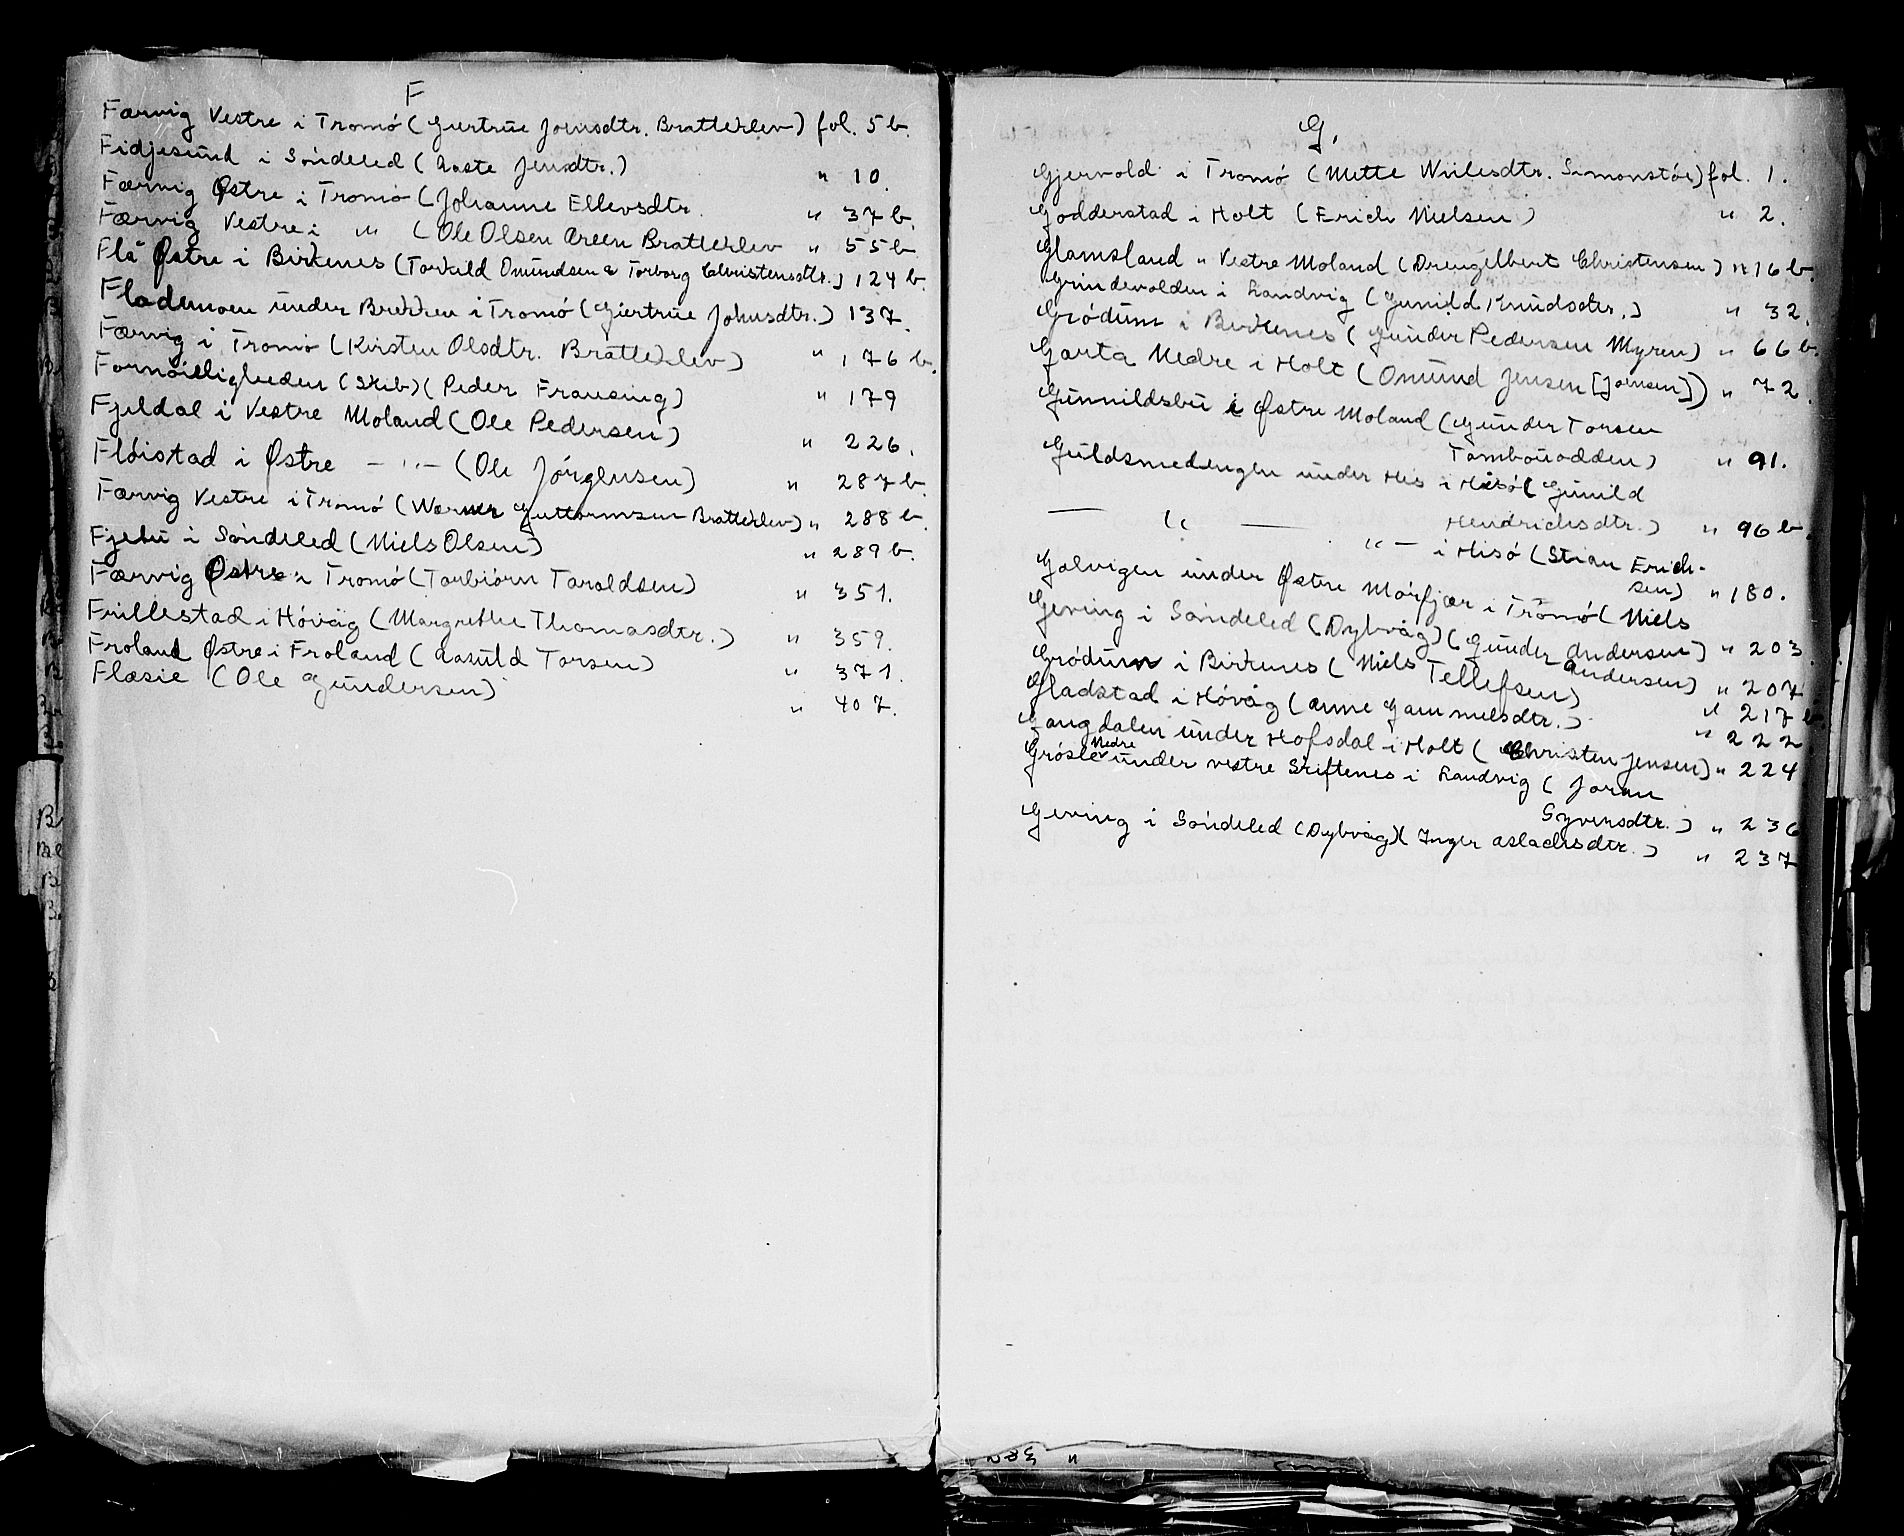 F
Færvig Vestre i Tromö (Giertrue Joensdtr. Bratteklev) fol. 5 b.
Fidjesund i Söndeled (Aaste Jensdtr.) " 10.
Færvig Østre i Tromö (Johanne Ellevsdtr. " 37 b.
Færvig Vestre i " (Ole Olsen Green Bratteklev " 55 b
Flå Østre i Birkenes (Torkild Omundsen & Torborg Christensdtr.) 124 b.
Flademoen under Brekken i Tromö (Giertrue Johnsdtr.) 137.
Færvig i Tromö (Kirsten Olsdtr. Bratteklev) " 176 b.
Fornöieligheden (Skib) (Peder Fransing) " 179
Fjeldal i Vestre Moland (Ole Pedersen) " 226.
Flöistad i Østre — " — (Ole Jörgensen) " 287 b.
Færvig Vestre i Tromö (Werner Guttormsen Bratteklev) " 288 b.
Fjebu i Söndeled (Niels Olsen) " 289 b.
Færvig Østre i Tromö (Torbiörn Taraldsen) " 351.
Frillestad i Hövåg (Margrethe Thomasdtr.) " 359.
Froland Østre i Froland (Aasuld Torsen) " 371.
Flæsie (Ole Gundersen) " 407.
G.
Gjervold i Tromö (Mette Nielsdtr. Simonstöe) fol. 1.
Godderstad i Holt (Erich Nielsen) " 2.
Glamsland " Vestre Moland (Drengelbert Christensen) " 16 b
Grindevolden i Landvig (Gunild Knudsdtr.) " 32.
Grödum i Birkenes (Gunder Pedersen Myren) " 66 b.
Garta Nedre i Holt (Omund Jensen [Joensen]) " 72.
Gunnildsbu i Østre Moland (Gunder Torsen
Tambouodden) " 91.
Guldsmedengen under His i Hisö (Gunild
Hendrichsdtr.) " 96 b.
— " — " — i Hisö (Stian Erich-
sen) " 180.
Galvigen under Østre Mörfjær i Tromö (Niels
Andersen) " 203
Geving i Söndeled (Dybvåg) (Gunder Andersen) " 207
Grödum i Birkenes (Niels Tellefsen) " 217 b
Gladstad i Hövåg (Anne Gammelsdtr.) " 222
Gangdalen under Hofsdal i Holt (Christen Jensen) " 224
Grösle Nedre under vestre Griftenes i Landvig (Joran
Syvensdtr.) " 236
Geving i Söndeled (Dybvåg) (Inger Aslachsdtr.) " 237